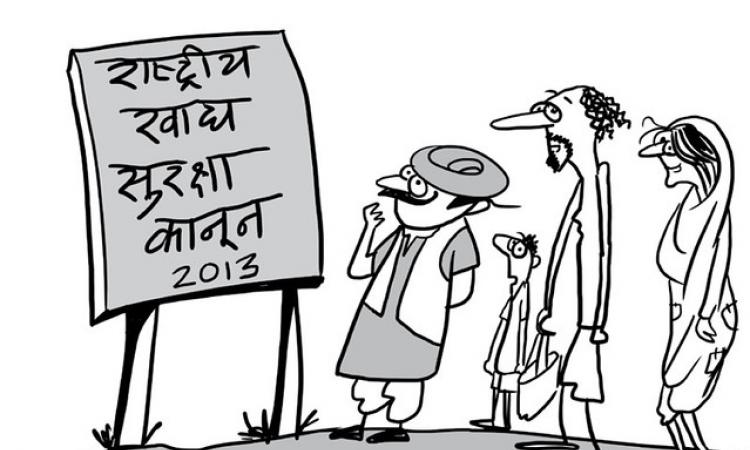 राष्ट्रीय
खाद्य
सुरक्षा
कानून
2013